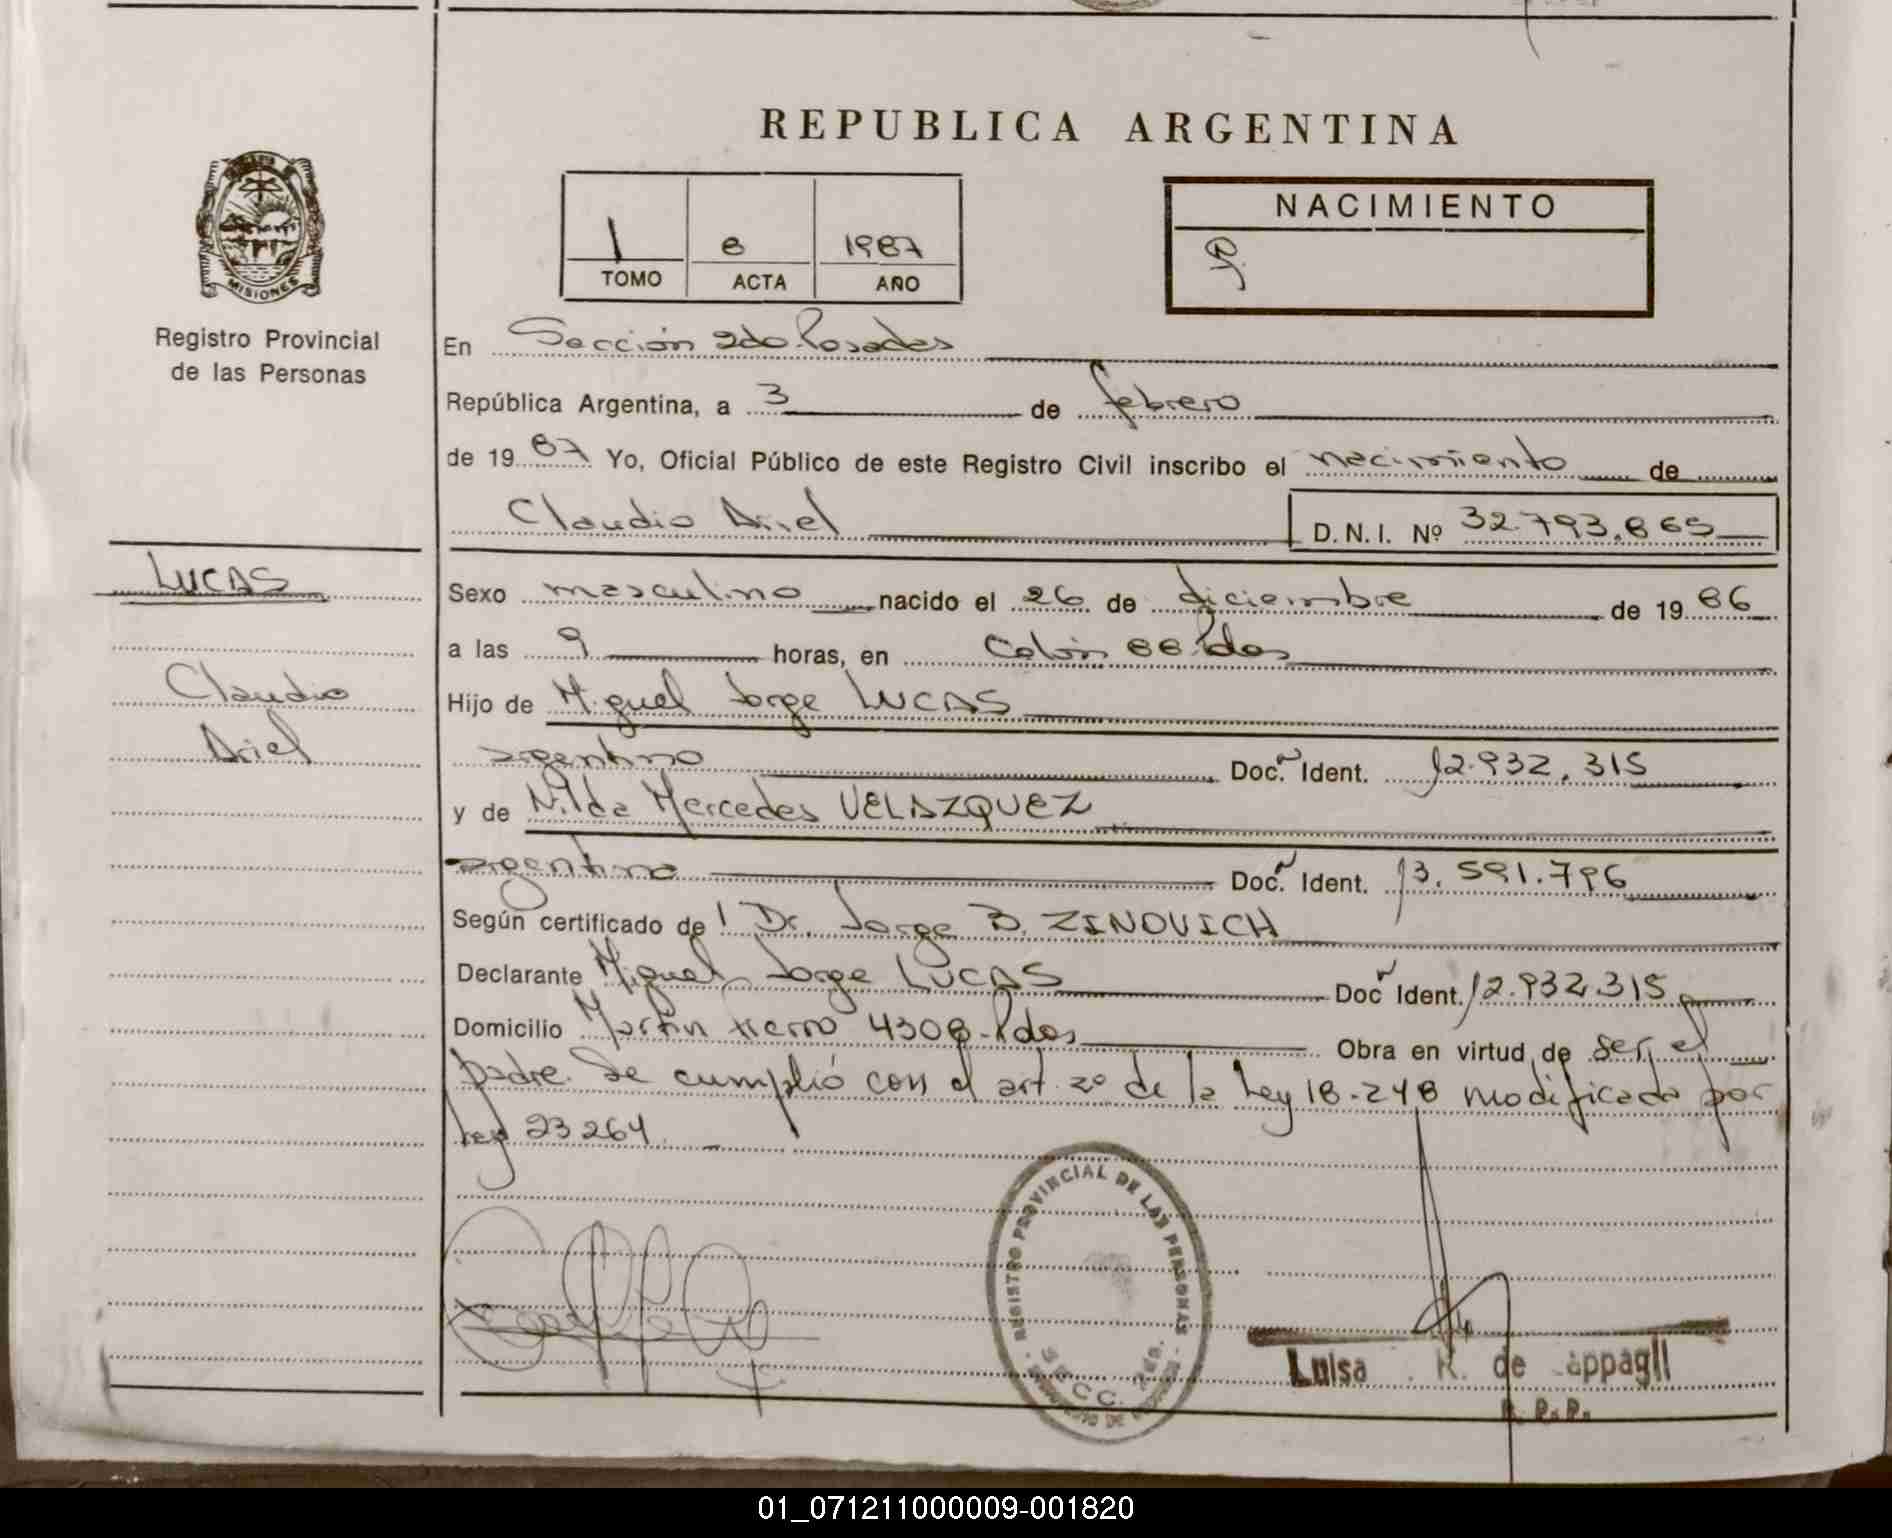 REPUBLICA ARGENTINA
MISIONES
Registro Provincial
de las Personas
1 8 1987
TOMO ACTA AÑO
NACIMIENTO
En Sección 2da. Posadas
República Argentina, a 3 de febrero
de 1987 Yo, Oficial Público de este Registro Civil inscribo el nacimiento de
Claudio Ariel D.N.I. Nº 32.793.865
LUCAS
Claudio
Ariel
Sexo masculino nacido el 26 de diciembre de 1986
a las 9 horas, en Colón 88. Pdas
Hijo de Miguel Jorge LUCAS
argentino Doc. Ident. 12.932.315
y de Nilda Mercedes VELAZQUEZ
argentina Doc. Ident. 13.591.796
Según certificado de l Dr. Jorge B. ZINOVICH
Declarante Miguel Jorge LUCAS Doc Ident. 12.932.315
Domicilio Martin Fierro 4308-Pdas Obra en virtud de ser el
padre. Se cumplió con el art. 2º de la Ley 18.248 modificada por
Ley 23264.
REGISTRO PROVINCIAL DE LAS PERSONAS
SECC. 2da.
Luisa R. de
R. P. P.
01_071211000009-001820